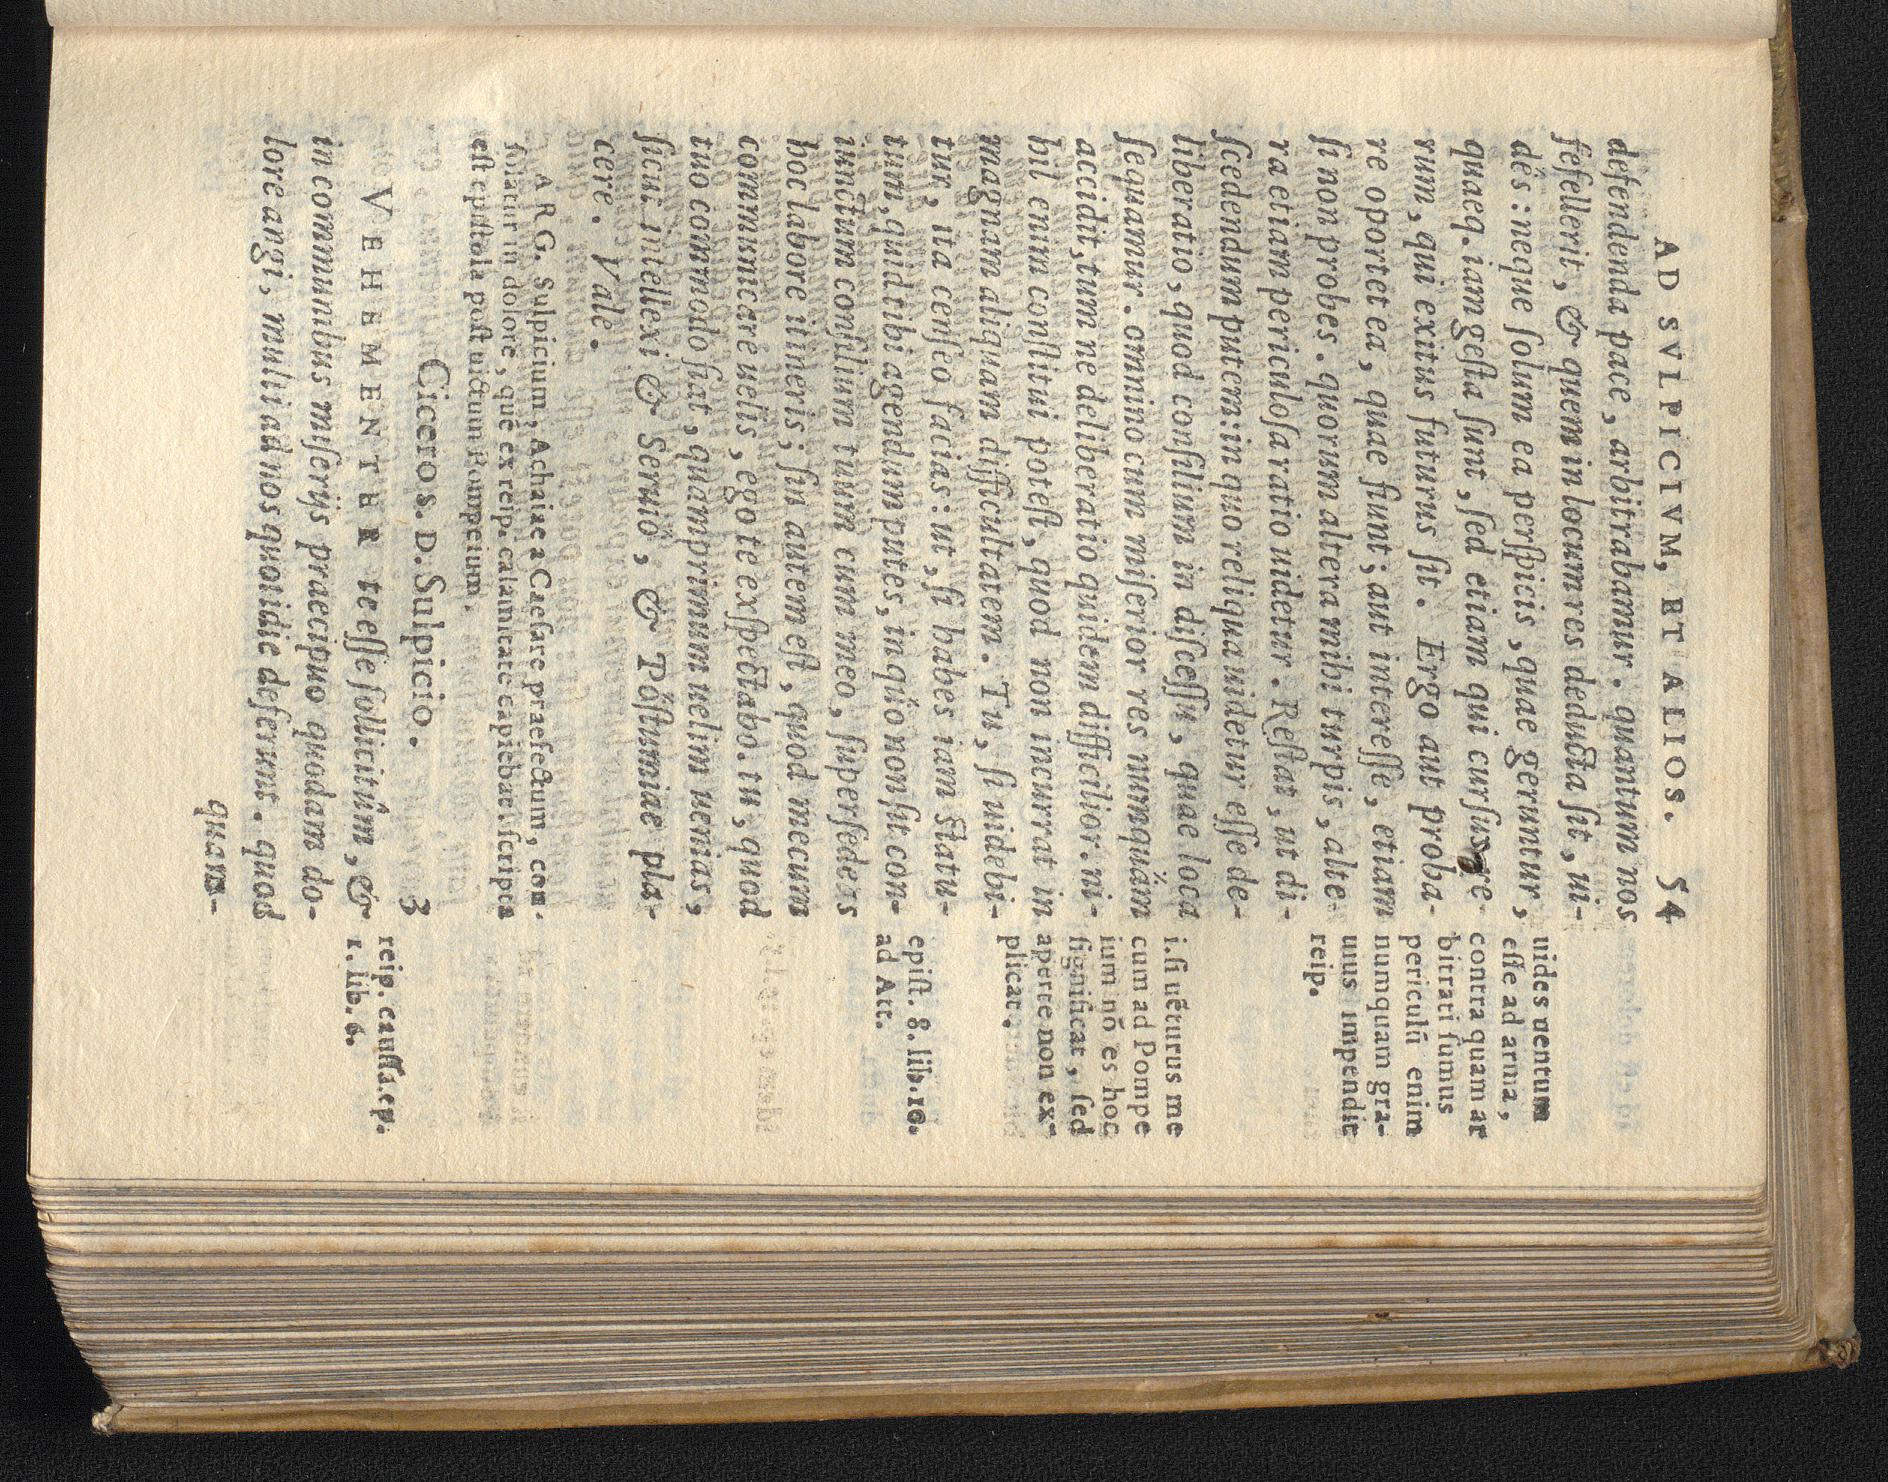 AD SVLPICIVM, ET ALIOS. 54
defendenda pace, arbitrabamur. quantum nos
fefellerit, & quem in locum res deducta sit, ui-
des: neque solum ea perspicis, quae geruntur,
quaeq. iam gesta sunt, sed etiam qui cursus re-
rum, qui exitus futurus sit. Ergo aut proba-
re oportet ea, quae fiunt; aut interesse, etiam
si non probes. quorum altera mihi turpis, alte-
ra etiam periculosa ratio uidetur. Restat, ut di-
scedendum putem: in quo reliqua uidetur esse de-
liberatio, quod consilium in discessu, quae loca
sequamur. omnino cum miserior res numquàm
accidit, tum ne deliberatio quidem difficilior. ni-
hil enim constitui potest, quod non incurrat in
magnam aliquam difficultatem. Tu, si uidebi-
tur, ita censeo facias: ut, si habes iam statu-
tum, quid tibi agendum putes, in quo non sit con-
iunctum consilium tuum cum meo, supersedeas
hoc labore itineris; sin autem est, quod mecum
communicare uelis, ego te exspectabo. tu, quod
tuo commodo fiat, quamprimum uelim uenias,
sicut intellexi & Seruio, & Postumiae pla-
cere. Vale.
ARG. Sulpicium, Achaiae a Caesare praefectum, con-
solatur in dolore, quē ex reip. calamitate capiebat. scripta
est epistola post uictum Pompeium.
Cicero s. D. Sulpicio. 3
VEHEMENTER te esse sollicitum, &
in communibus miserijs praecipuo quodam do-
lore angi, multi ad nos quotidie deferunt. quod
quam-
uides uentum
esse ad arma,
contra quam ar
bitrati sumus
periculū enim
numquam gra-
uius impendit
reip.
i. si uēturus me
cum ad Pompe
ium nō es hoc
significat, sed
aperte non ex-
plicat.
epist. 8. lib. 10.
ad Att.
reip. caussa. ep.
1. lib. 6.